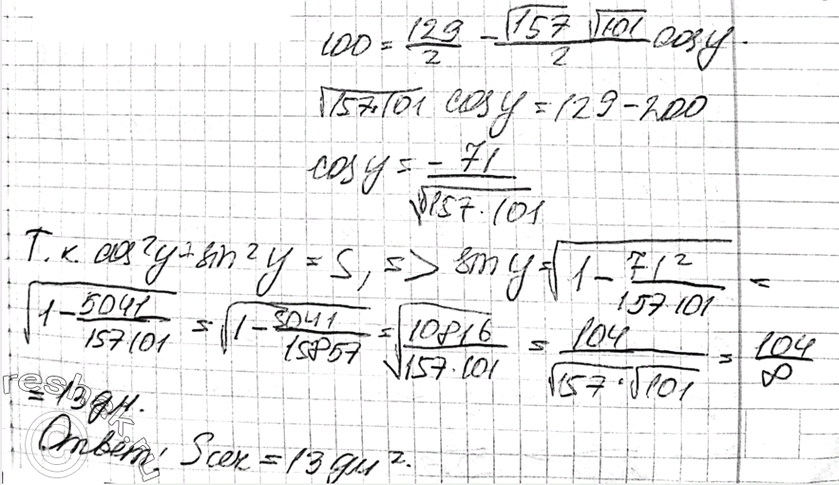 100 = 129/2 - √157 √101/2 cos y.
√157·101 cos y = 129 - 200
cos y = -71/√157·101
Т.к. cos²y + sin²y = S, => sin y = √1 - 71²/157 101 =
√1 - 5041/157 101 = √1 - 5041/15857 = √10816/157·101 = 104/√157·√101 = 104/∞
= 13 дм.
Ответ: Sсек = 13 дм².